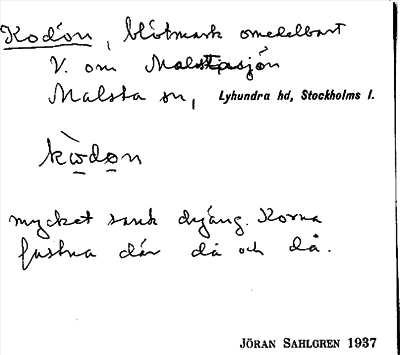 Kodön, blötmark omedelbart
V. om Malstasjön
Malsta sn, Lyhundra hd, Stockholms l.
kẁdo̲n
mycket sank dyäng. Korna
fastna där då och då.
JÖRAN SAHLGREN 1937